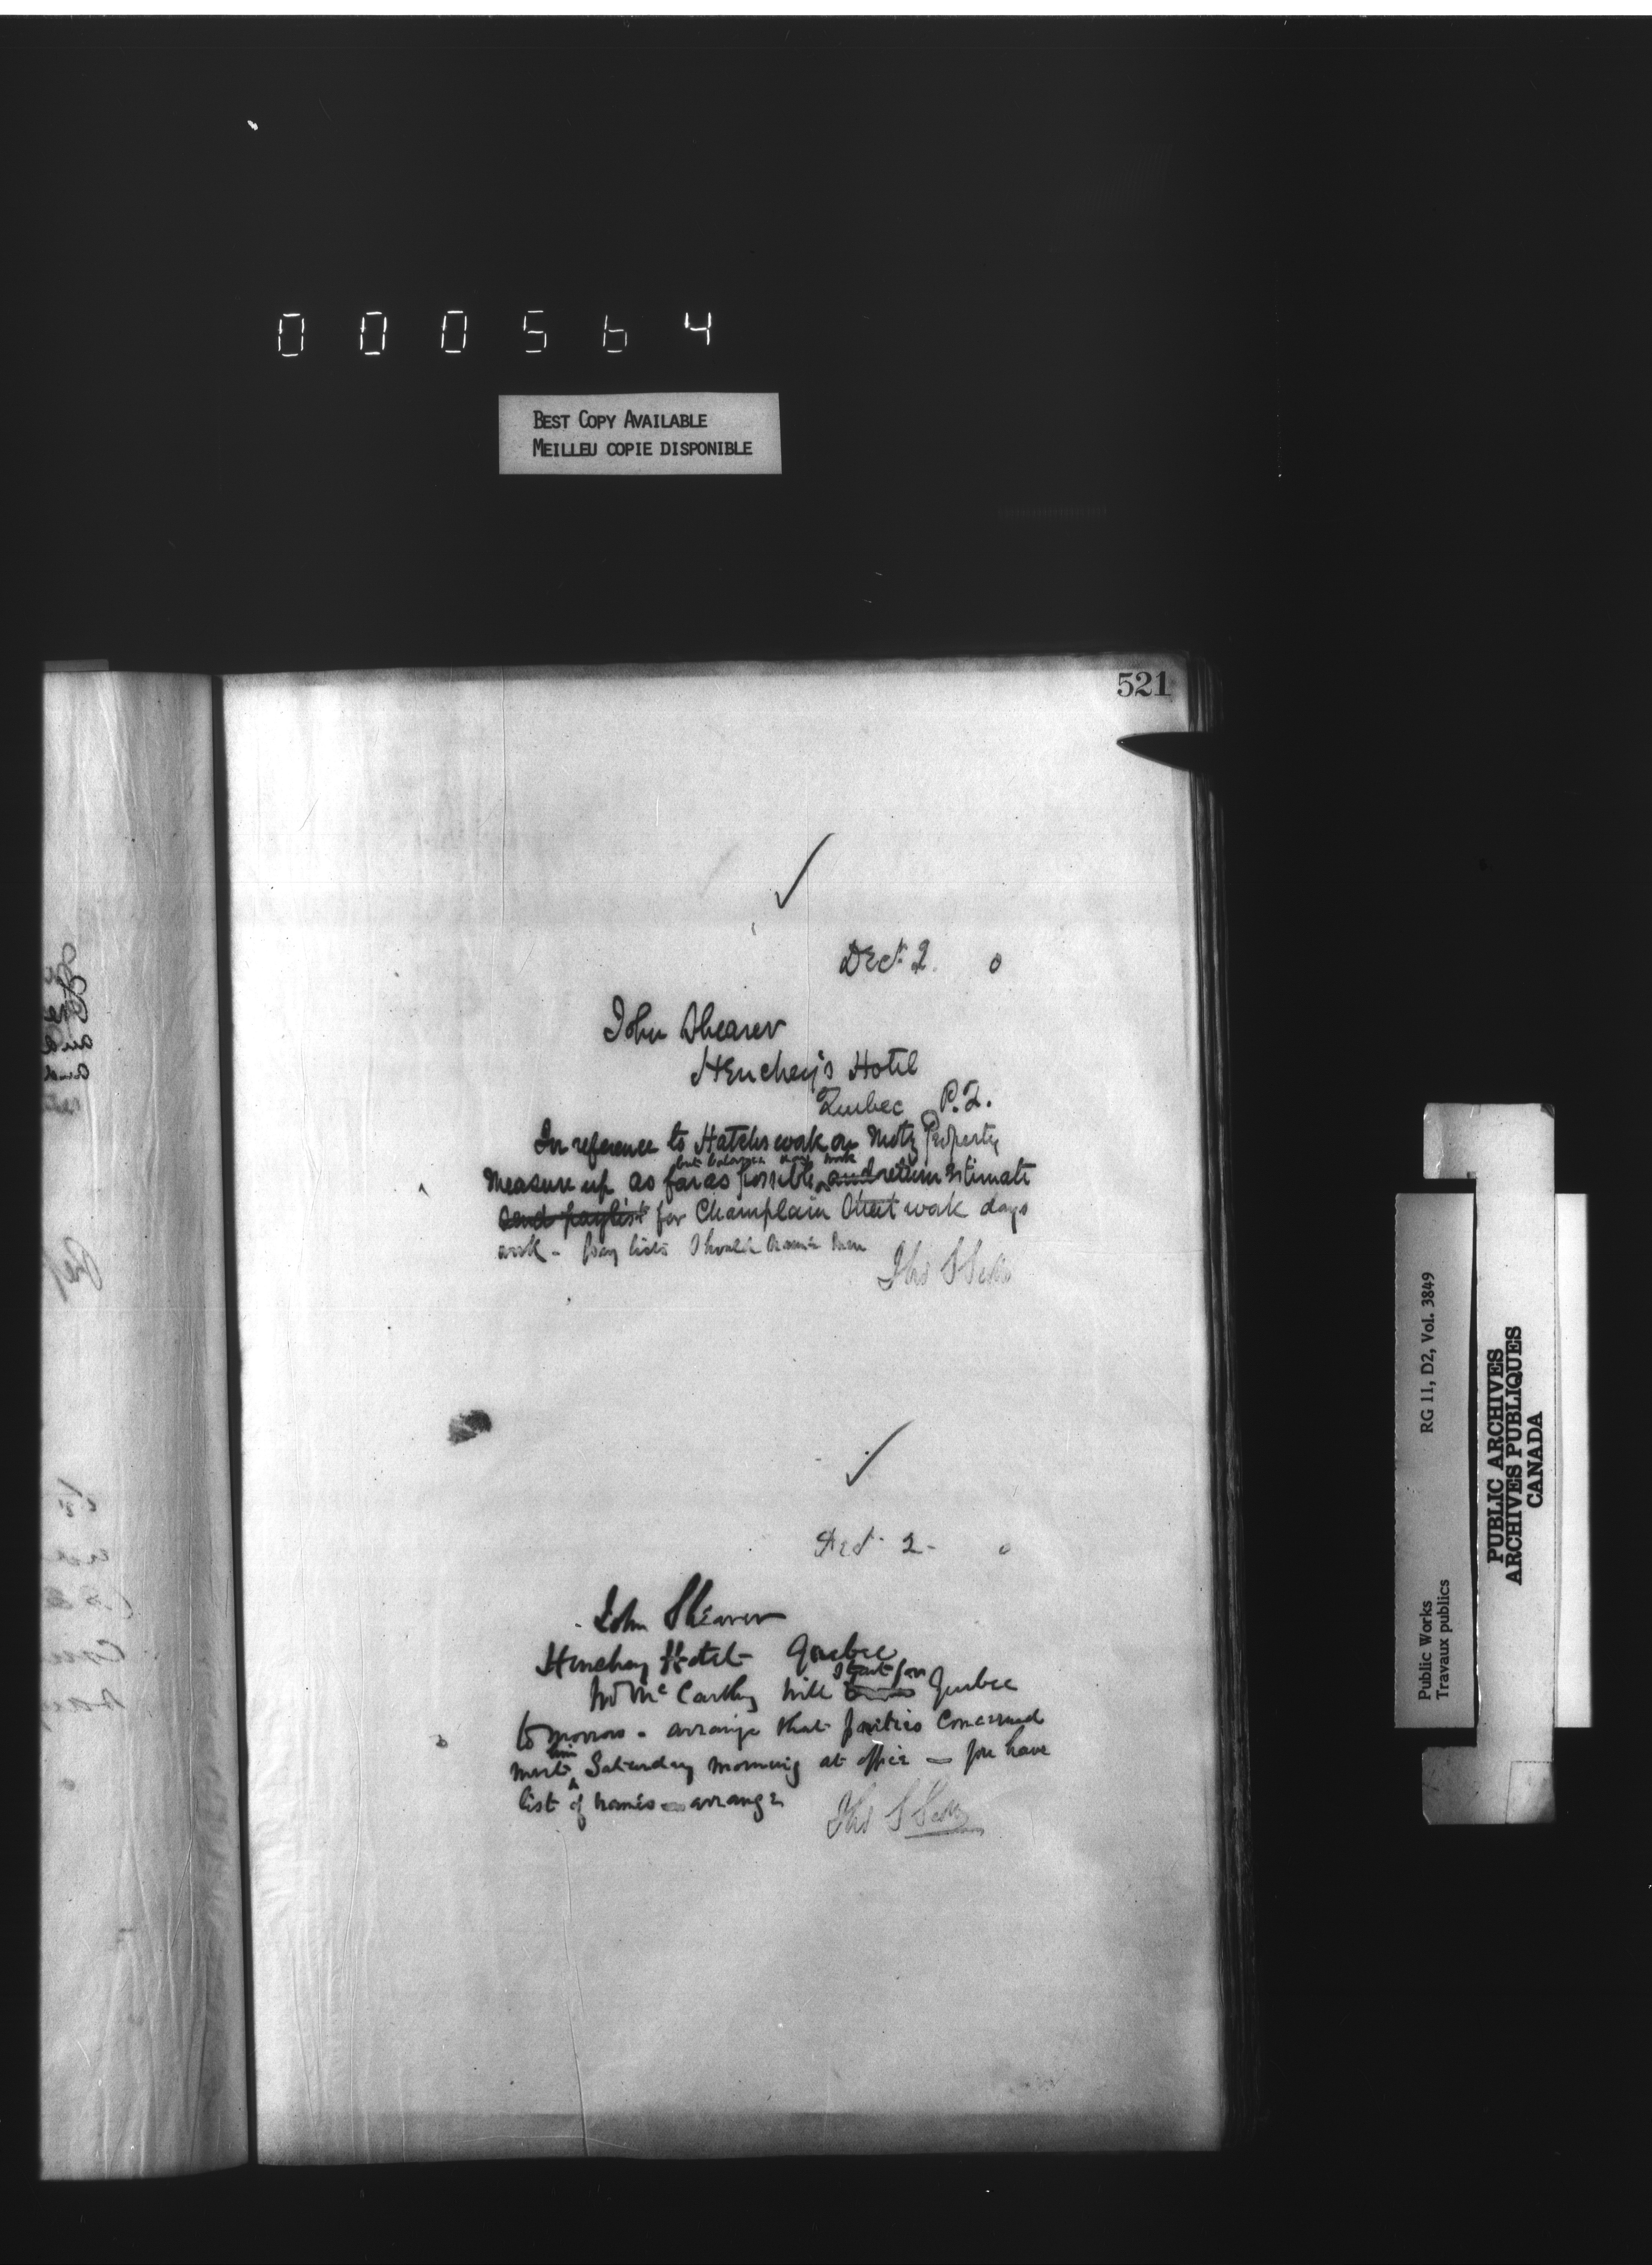 000564
BEST COPY AVAILABLE
MEILLEU COPIE DISPONIBLE
521
Dec. 2. 0
John Shearer
Henchey's Hotel
Quebec P.Q.
In reference to Hatchs work on Motz Property
but balance days work
Measure up as far as possible and return Estimate
send paylist for Champlain Street work days
work - pay lists should name men
Thos S
Dec. 2 - 0
John Shearer
Henchey Hotel - Quebec
Start for
Mr McCarthy will Quebec
tomorrow - arrange that parties concerned
him
meet Saturday morning at office - you have
list of names arrange
Thos S
Public Works
Travaux publics
RG 11, D2, Vol. 3849
PUBLIC ARCHIVES
ARCHIVES PUBLIQUES
CANADA